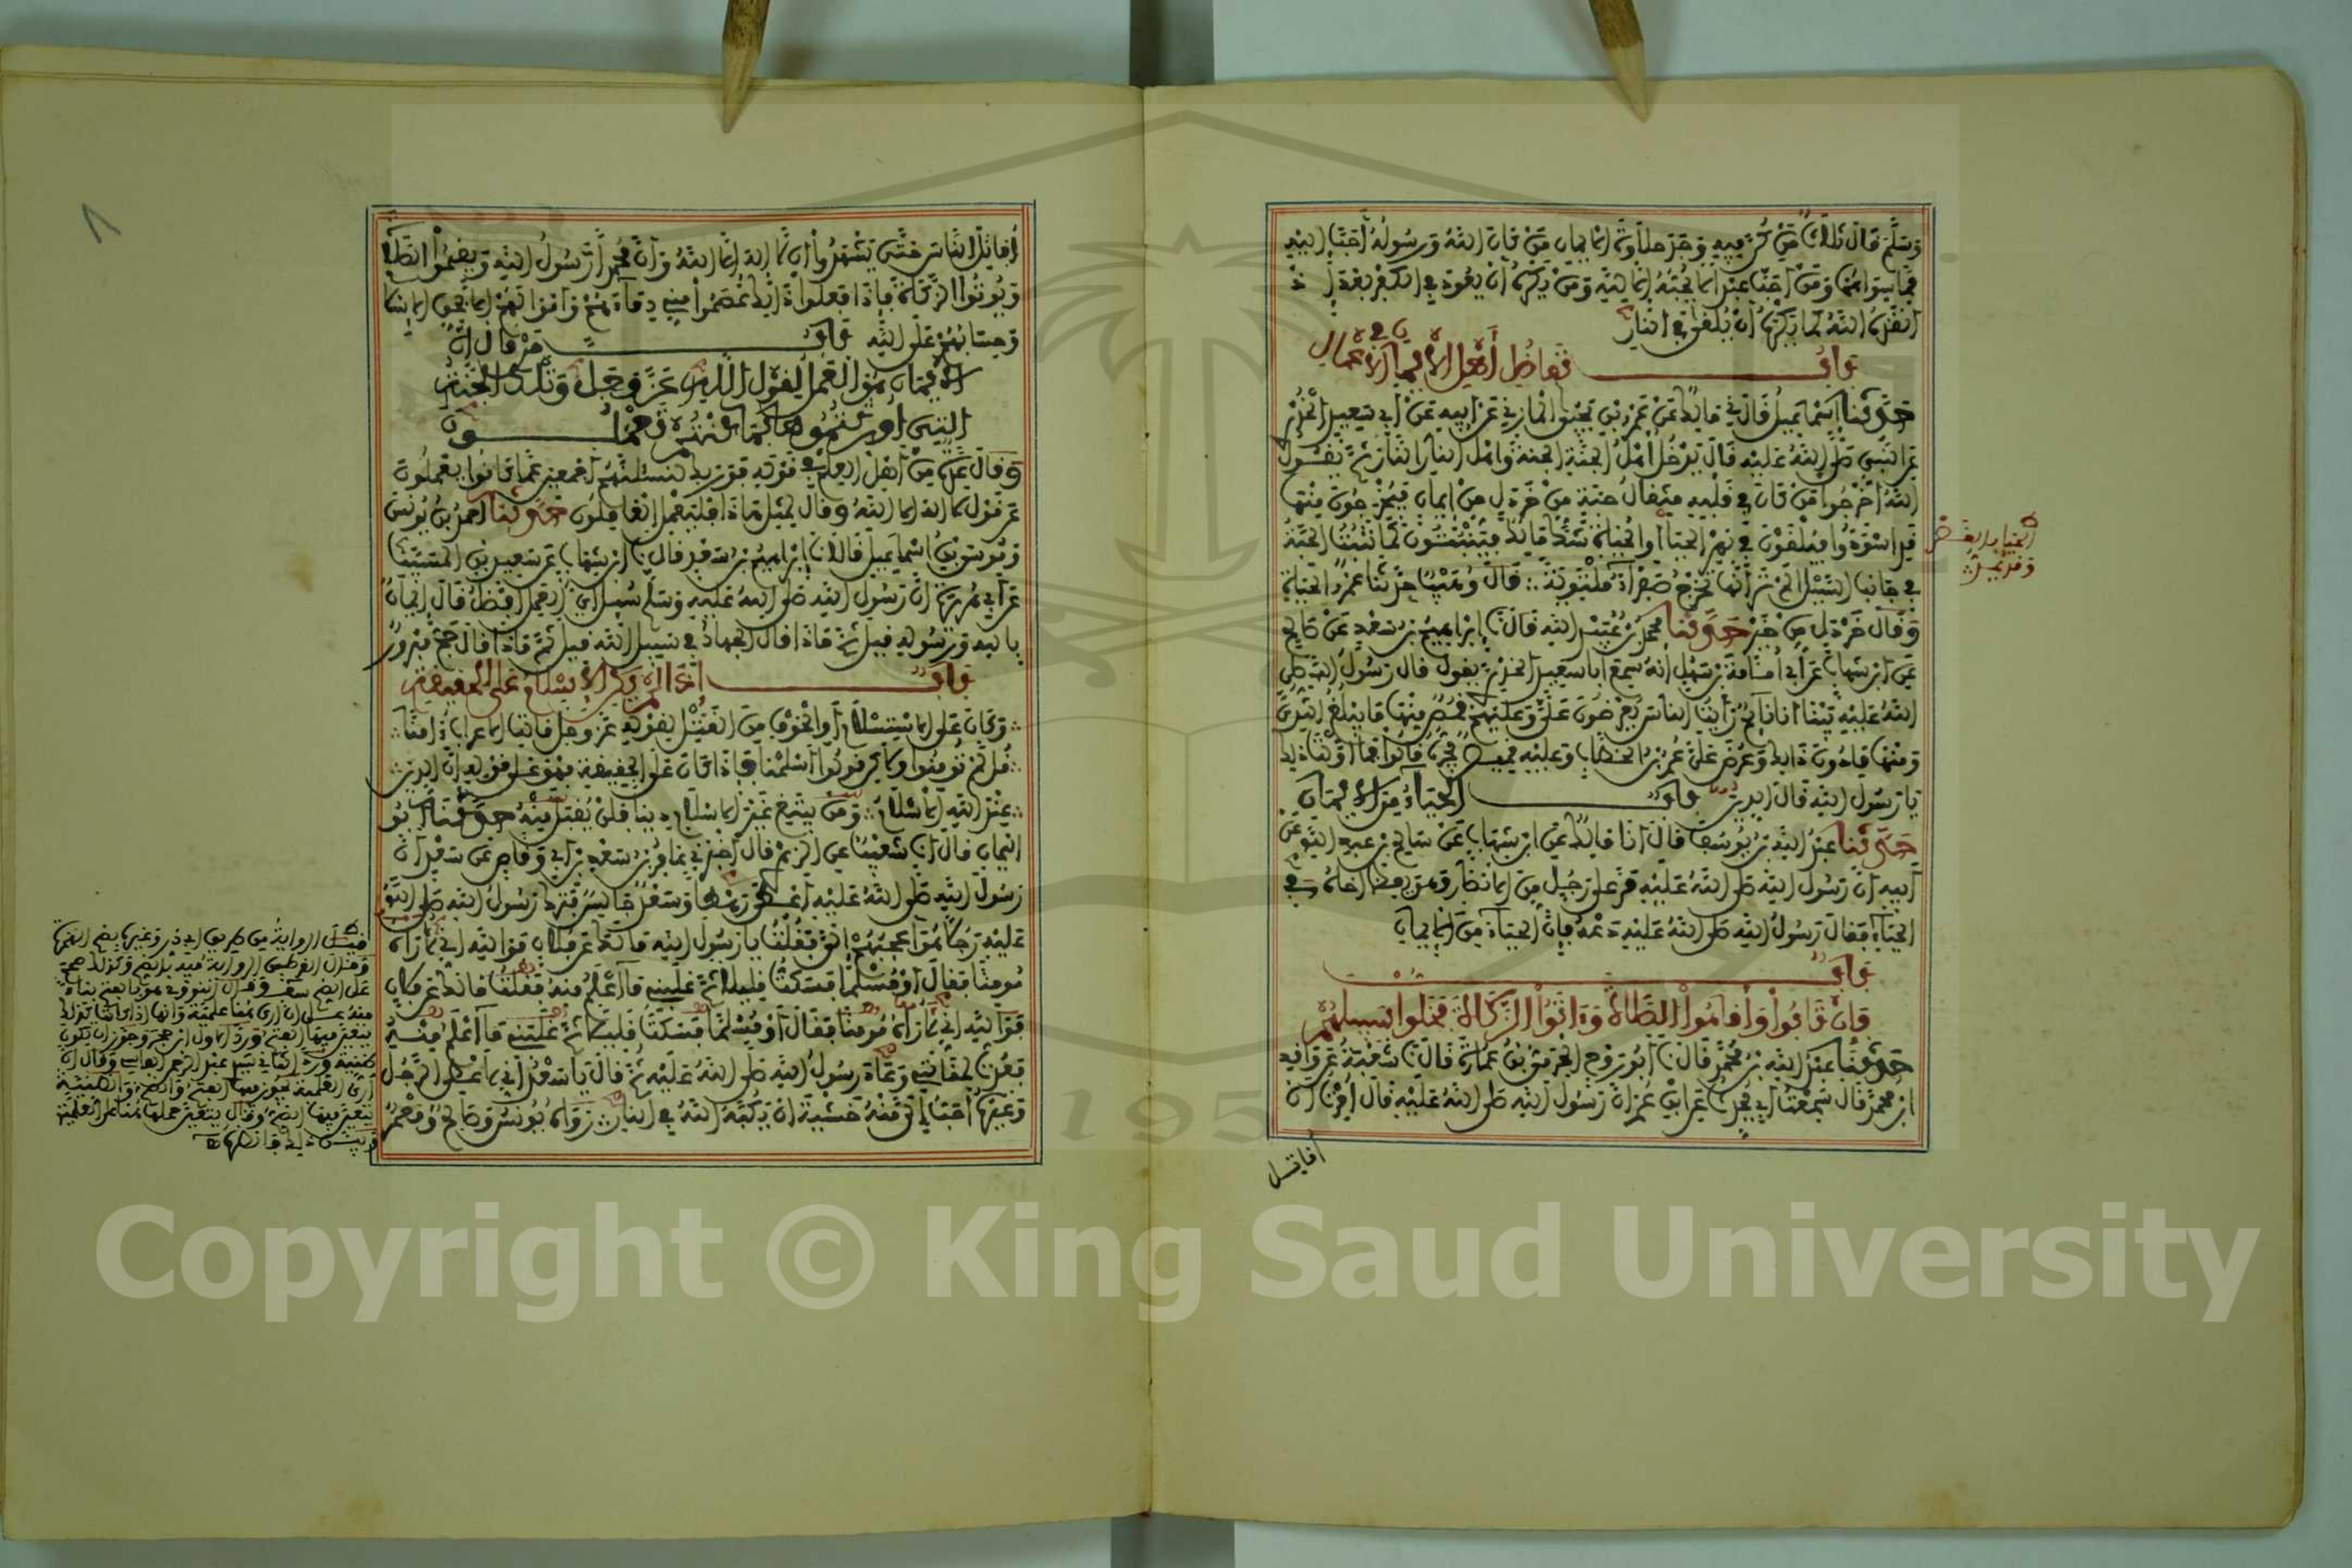 وَسَلَّمَ قَالَ ثَلَاثٌ مَنْ كُنَّ فِيهِ وَجَدَ حَلَاوَةَ الْإِيمَانِ مَنْ كَانَ اللَّهُ وَرَسُولُهُ أَحَبَّ إِلَيْهِ
مِمَّا سِوَاهُمَا وَمَنْ أَحَبَّ عَبْدًا لَا يُحِبُّهُ إِلَّا لِلَّهِ وَمَنْ يَكْرَهُ أَنْ يَعُودَ فِي الْكُفْرِ بَعْدَ إِذْ
أَنْقَذَهُ اللَّهُ كَمَا يَكْرَهُ أَنْ يُلْقَى فِي النَّارِ
بَابُ تَفَاضُلِ أَهْلِ الْإِيمَانِ فِي الْأَعْمَالِ
حَدَّثَنَا إِسْمَاعِيلُ قَالَ مَالِكٌ عَنْ عَمْرِو بْنِ يَحْيَى الْمَازِنِيِّ عَنْ أَبِيهِ عَنْ أَبِي سَعِيدٍ الْخُدْرِيِّ
عَنِ النَّبِيِّ صَلَّى اللَّهُ عَلَيْهِ قَالَ يَدْخُلُ أَهْلُ الْجَنَّةِ الْجَنَّةَ وَأَهْلُ النَّارِ النَّارَ ثُمَّ يَقُولُ
اللَّهُ أَخْرِجُوا مَنْ كَانَ فِي قَلْبِهِ مِثْقَالُ حَبَّةٍ مِنْ خَرْدَلٍ مِنْ إِيمَانٍ فَيُخْرَجُونَ مِنْهَا
قَدِ اسْوَدُّوا فَيُلْقَوْنَ فِي نَهَرِ الْحَيَا أَوِ الْحَيَاةِ شَكَّ مَالِكٌ فَيَنْبُتُونَ كَمَا تَنْبُتُ الْحِبَّةُ
فِي جَانِبِ السَّيْلِ أَلَمْ تَرَ أَنَّهَا تَخْرُجُ صَفْرَاءَ مُلْتَوِيَةً قَالَ وُهَيْبٌ حَدَّثَنَا عَمْرٌو الْحَيَاةِ
وَقَالَ خَرْدَلٍ مِنْ خَيْرٍ حَدَّثَنَا مُحَمَّدُ بْنُ عُبَيْدِ اللَّهِ قَالَ نا إِبْرَاهِيمُ بْنُ سَعْدٍ عَنْ صَالِحٍ
عَنِ ابْنِ شِهَابٍ عَنْ أَبِي أُمَامَةَ بْنِ سَهْلٍ أَنَّهُ سَمِعَ أَبَا سَعِيدٍ الْخُدْرِيَّ يَقُولُ قَالَ رَسُولُ اللَّهِ صَلَّى
اللَّهُ عَلَيْهِ بَيْنَا أَنَا نَائِمٌ رَأَيْتُ النَّاسَ يُعْرَضُونَ عَلَيَّ وَعَلَيْهِمْ قُمُصٌ مِنْهَا مَا يَبْلُغُ الثُّدِيَّ
وَمِنْهَا مَا دُونَ ذَلِكَ وَعُرِضَ عَلَيَّ عُمَرُ بْنُ الْخَطَّابِ وَعَلَيْهِ قَمِيصٌ يَجُرُّهُ قَالُوا فَمَا أَوَّلْتَ ذَلِكَ
يَا رَسُولَ اللَّهِ قَالَ الدِّينَ بَابُ الْحَيَاءُ مِنَ الْإِيمَانِ
حَدَّثَنَا عَبْدُ اللَّهِ بْنُ يُوسُفَ قَالَ أَنَا مَالِكٌ عَنِ ابْنِ شِهَابٍ عَنْ سَالِمِ بْنِ عَبْدِ اللَّهِ عَنْ
أَبِيهِ أَنَّ رَسُولَ اللَّهِ صَلَّى اللَّهُ عَلَيْهِ مَرَّ عَلَى رَجُلٍ مِنَ الْأَنْصَارِ وَهُوَ يَعِظُ أَخَاهُ فِي
الْحَيَاءِ فَقَالَ رَسُولُ اللَّهِ صَلَّى اللَّهُ عَلَيْهِ دَعْهُ فَإِنَّ الْحَيَاءَ مِنَ الْإِيمَانِ
بَابُ
فَإِنْ تَابُوا وَأَقَامُوا الصَّلَاةَ وَءَاتَوُا الزَّكَاةَ فَخَلُّوا سَبِيلَهُمْ
حَدَّثَنَا عَبْدُ اللَّهِ بْنُ مُحَمَّدٍ قَالَ نا أَبُو رَوْحٍ الْحَرَمِيُّ بْنُ عُمَارَةَ قَالَ نا شُعْبَةُ عَنْ وَاقِدِ
ابْنِ مُحَمَّدٍ قَالَ سَمِعْتُ أَبِي يُحَدِّثُ عَنِ ابْنِ عُمَرَ أَنَّ رَسُولَ اللَّهِ صَلَّى اللَّهُ عَلَيْهِ قَالَ أُمِرْتُ أَنْ
أقاتل
أُقَاتِلَ النَّاسَ حَتَّى يَشْهَدُوا أَنْ لَا إِلَهَ إِلَّا اللَّهُ وَأَنَّ مُحَمَّدًا رَسُولُ اللَّهِ وَيُقِيمُوا الصَّلَاةَ
وَيُوتُوا الزَّكَاةَ فَإِذَا فَعَلُوا ذَلِكَ عَصَمُوا مِنِّي دِمَاءَهُمْ وَأَمْوَالَهُمْ إِلَّا بِحَقِّ الْإِسْلَامِ
وَحِسَابُهُمْ عَلَى اللَّهِ بَابُ مَنْ قَالَ إِنَّ
الْإِيمَانَ هُوَ الْعَمَلُ لِقَوْلِ اللَّهِ عَزَّ وَجَلَّ وَتِلْكَ الْجَنَّةُ
الَّتِي أُورِثْتُمُوهَا بِمَا كُنْتُمْ تَعْمَلُونَ
وَقَالَ عِدَّةٌ مِنْ أَهْلِ الْعِلْمِ فِي قَوْلِهِ فَوَرَبِّكَ لَنَسْأَلَنَّهُمْ أَجْمَعِينَ عَمَّا كَانُوا يَعْمَلُونَ
عَنْ قَوْلِ لَا إِلَهَ إِلَّا اللَّهُ وَقَالَ لِمِثْلِ هَذَا فَلْيَعْمَلِ الْعَامِلُونَ حَدَّثَنَا أَحْمَدُ بْنُ يُونُسَ
وَمُوسَى بْنُ إِسْمَاعِيلَ قَالَا نا إِبْرَاهِيمُ بْنُ سَعْدٍ قَالَ نا ابْنُ شِهَابٍ عَنْ سَعِيدِ بْنِ الْمُسَيَّبِ
عَنْ أَبِي هُرَيْرَةَ أَنَّ رَسُولَ اللَّهِ صَلَّى اللَّهُ عَلَيْهِ وَسَلَّمَ سُئِلَ أَيُّ الْعَمَلِ أَفْضَلُ قَالَ إِيمَانٌ
بِاللَّهِ وَرَسُولِهِ قِيلَ ثُمَّ مَاذَا قَالَ الْجِهَادُ فِي سَبِيلِ اللَّهِ قِيلَ ثُمَّ مَاذَا قَالَ حَجٌّ مَبْرُورٌ
بَابُ إِذَا لَمْ يَكُنِ الْإِسْلَامُ عَلَى الْحَقِيقَةِ
وَكَانَ عَلَى الِاسْتِسْلَامِ أَوِ الْخَوْفِ مِنَ الْقَتْلِ لِقَوْلِهِ عَزَّ وَجَلَّ قَالَتِ الْأَعْرَابُ ءَامَنَّا
قُلْ لَمْ تُومِنُوا وَلَكِنْ قُولُوا أَسْلَمْنَا فَإِذَا كَانَ عَلَى الْحَقِيقَةِ فَهُوَ عَلَى قَوْلِهِ إِنَّ الدِّينَ
عِنْدَ اللَّهِ الْإِسْلَامُ وَمَنْ يَبْتَغِ غَيْرَ الْإِسْلَامِ دِينًا فَلَنْ يُقْبَلَ مِنْهُ حَدَّثَنَا أَبُو
الْيَمَانِ قَالَ أنا شُعَيْبٌ عَنِ الزُّهْرِيِّ قَالَ أَخْبَرَنِي عَامِرُ بْنُ سَعْدِ بْنِ أَبِي وَقَّاصٍ عَنْ سَعْدٍ أَنَّ
رَسُولَ اللَّهِ صَلَّى اللَّهُ عَلَيْهِ أَعْطَى رَهْطًا وَسَعْدٌ جَالِسٌ فَتَرَكَ رَسُولُ اللَّهِ صَلَّى اللَّهُ
عَلَيْهِ رَجُلًا هُوَ أَعْجَبُهُمْ إِلَيَّ فَقُلْتُ يَا رَسُولَ اللَّهِ مَا لَكَ عَنْ فُلَانٍ فَوَاللَّهِ إِنِّي لَأَرَاهُ
مُومِنًا فَقَالَ أَوْ مُسْلِمًا فَسَكَتُّ قَلِيلًا ثُمَّ غَلَبَنِي مَا أَعْلَمُ مِنْهُ فَقُلْتُ مَا لَكَ عَنْ فُلَانٍ
فَوَاللَّهِ إِنِّي لَأَرَاهُ مُومِنًا فَقَالَ أَوْ مُسْلِمًا فَسَكَتُّ قَلِيلًا ثُمَّ غَلَبَنِي مَا أَعْلَمُ مِنْهُ
فَعُدْتُ لِمَقَالَتِي وَعَادَ رَسُولُ اللَّهِ صَلَّى اللَّهُ عَلَيْهِ ثُمَّ قَالَ يَا سَعْدُ إِنِّي لَأُعْطِي الرَّجُلَ
وَغَيْرُهُ أَحَبُّ إِلَيَّ مِنْهُ خَشْيَةَ أَنْ يَكُبَّهُ اللَّهُ فِي النَّارِ رَوَاهُ يُونُسُ وَصَالِحٌ وَمَعْمَرٌ
Copyright © King Saud University
195